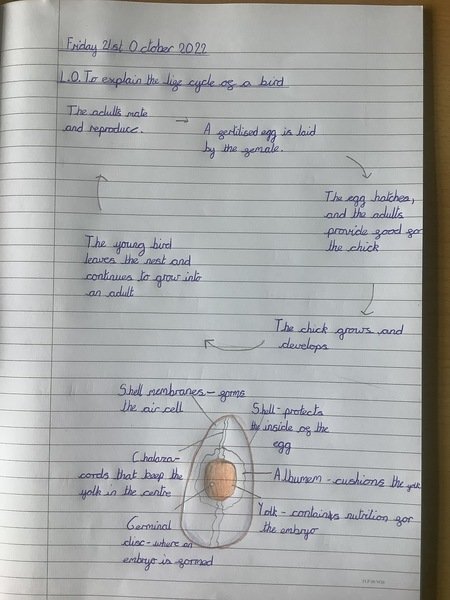 Friday 21st October 2022
L.O. To explain the life cycle of a bird
The adults mate
and reproduce.
A fertilised egg is laid
by the female.
The egg hatches,
and the adults
provide food fo
the chick
The chick grows and
develops
The young bird
leaves the nest and
continues to grow into
an adult
Shell membranes - forms
the air cell
Shell - protects
the inside of the
egg
Chalaza-
cords that keep the
yolk in the centre
Albumem - cushions the yolk
Yolk - contains nutrition for
the embryo
Germinal
disc - where an
embryo is formed